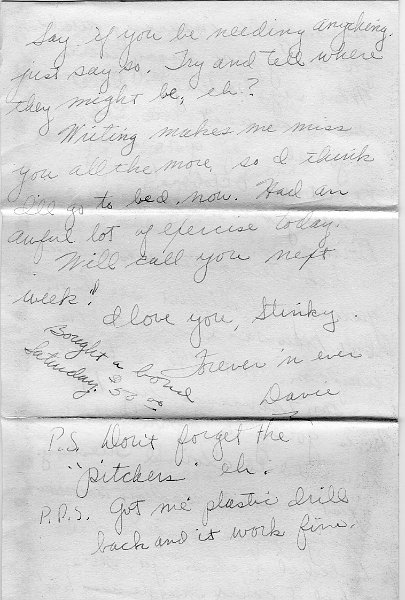 Say if you be needing anything,
just say so. Try and tell where
they might be, eh?
Writing makes me miss
you all the more, so I think
I'll go to bed, now. Had an
awful lot of exercise today.
Will call you next
week!
I love you, Stinky.
Forever 'n ever
Davie
Bought a bond
Saturday. $50.00
P.S. Don't forget the
"pitchers" eh.
P.P.S. Got me plastic drill
back and it work fine.